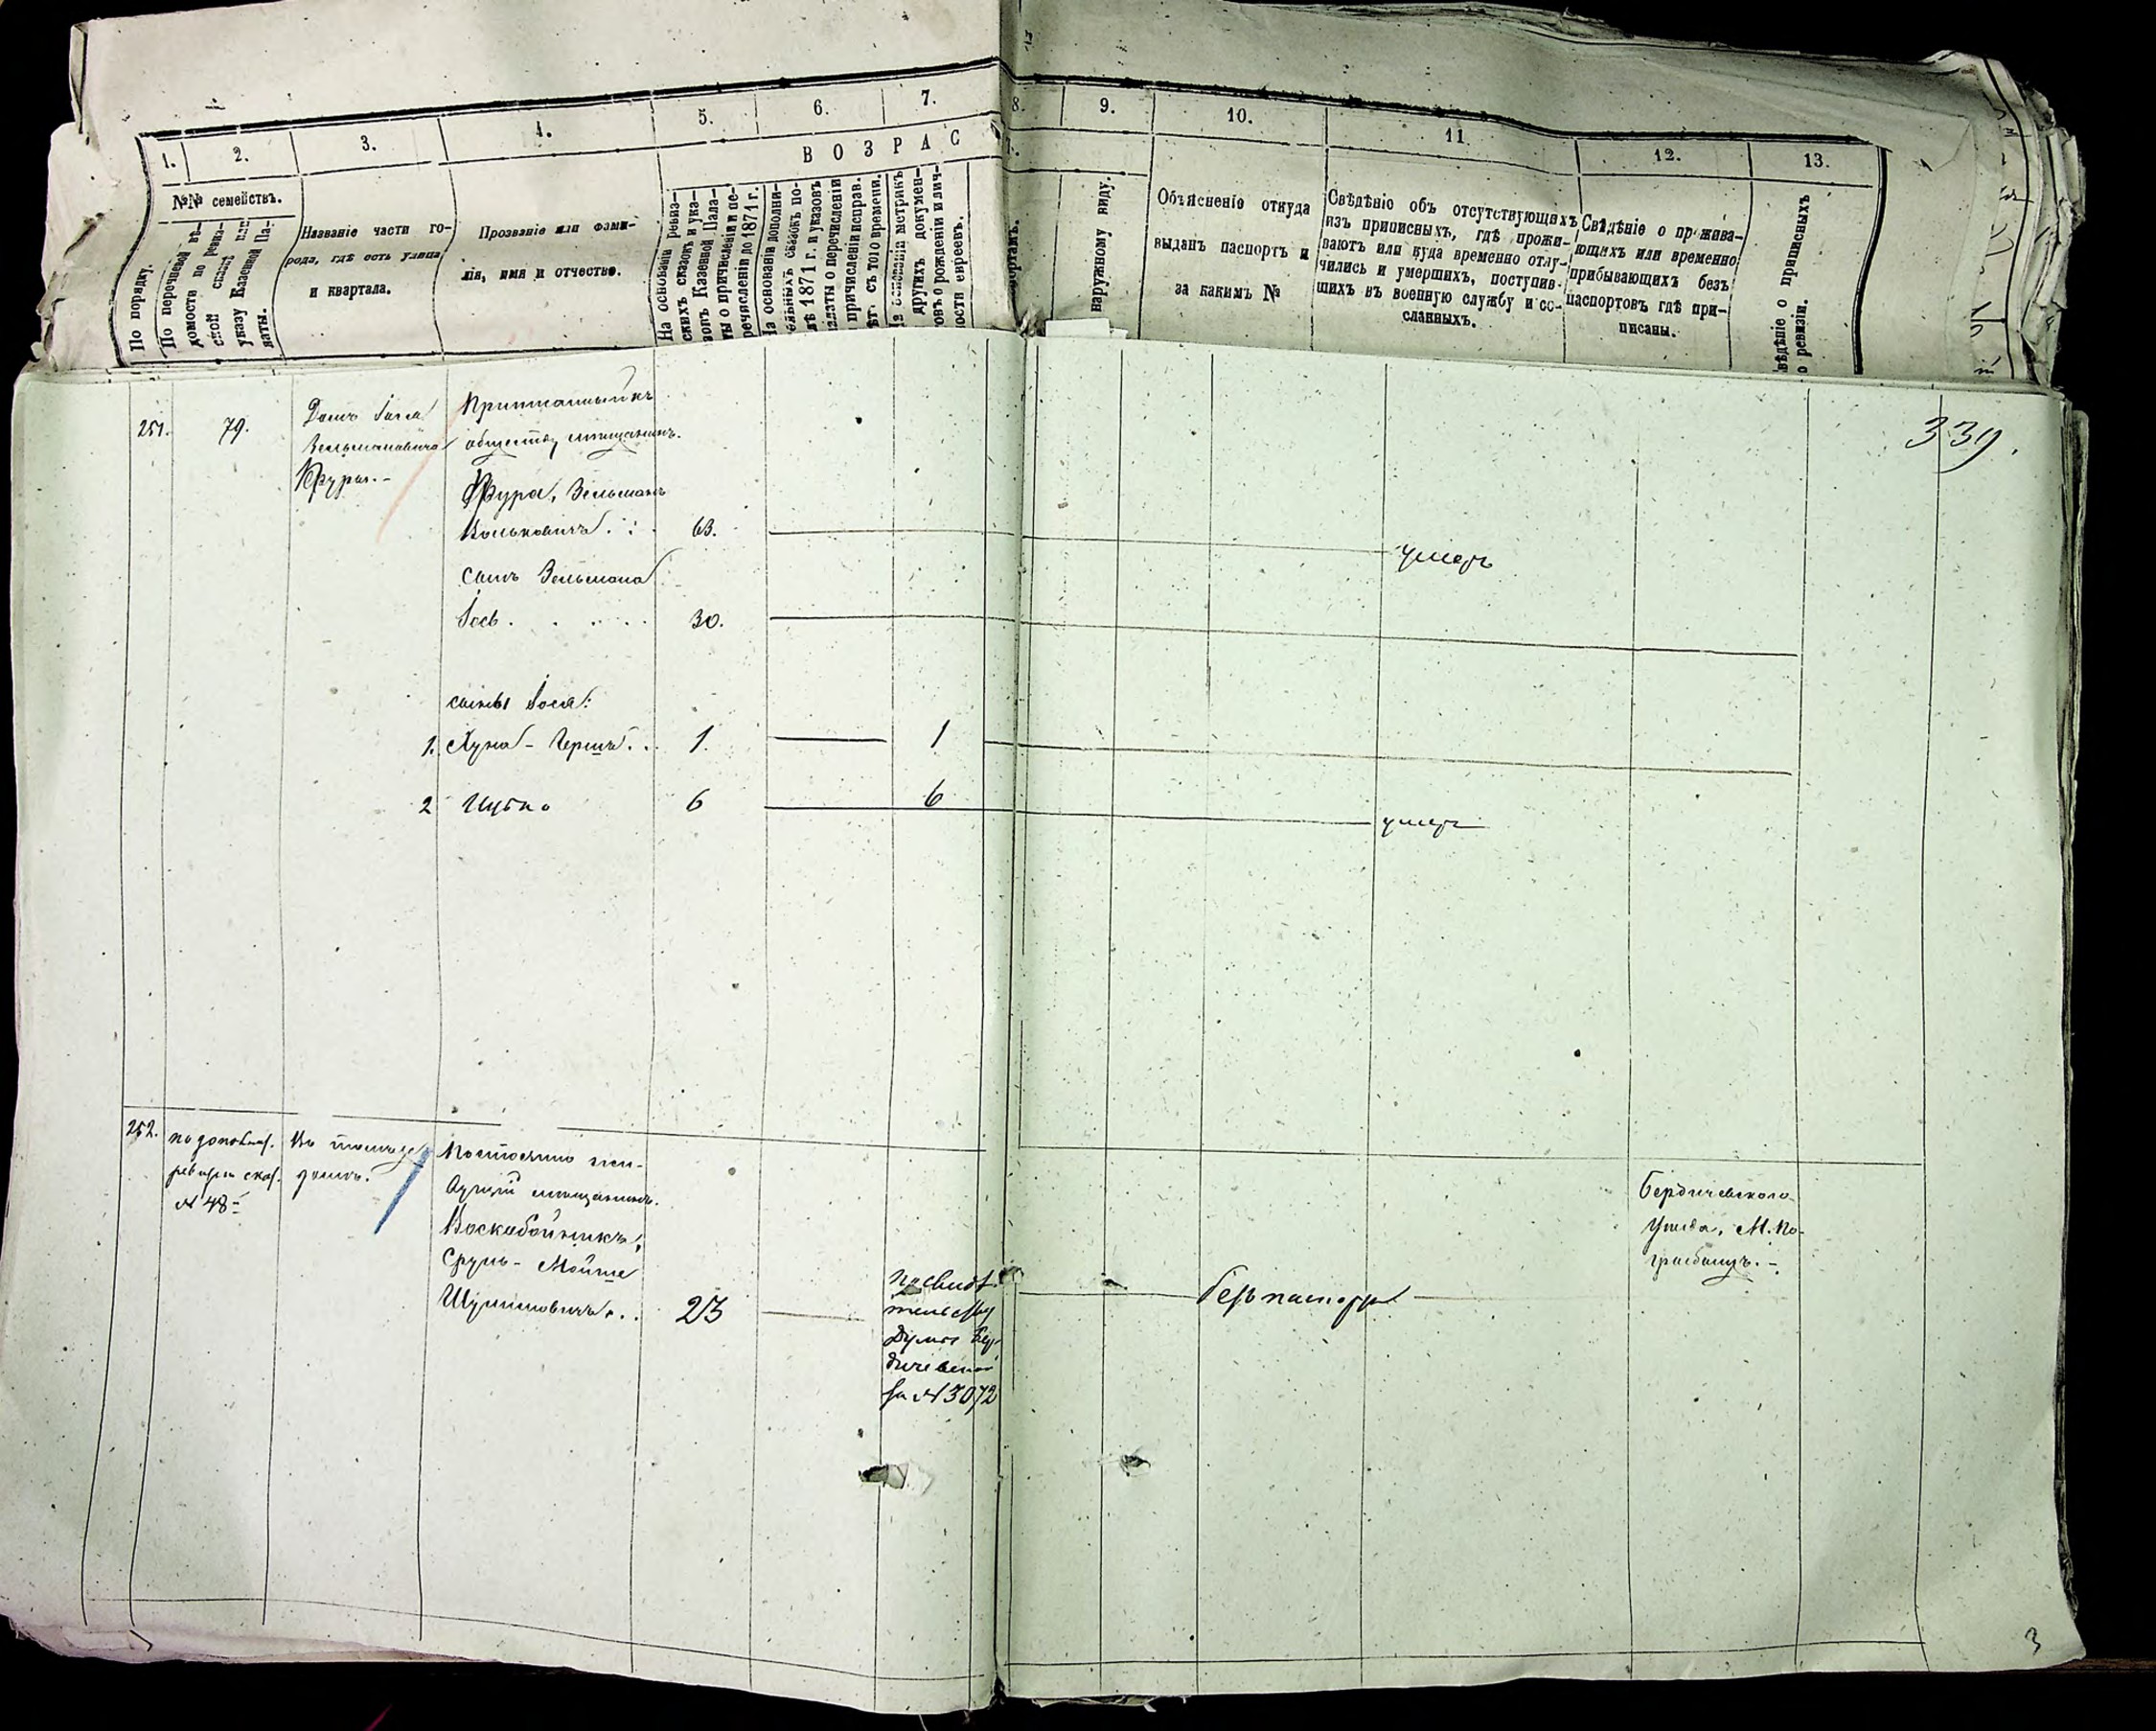 1.
2.
3.
4.
5.
6.
7.
8.
9.
10.
11.
12.
13.
В О З Р А С
№№ семействъ.
По порядку.
По перечневой вѣ-
домости по ревиз-
ской сказкѣ или
указу Казенной Па-
латы.
Названіе части го-
рода, гдѣ есть улица
и квартала.
Прозваніе или фами-
лія, имя и отчество.
На основаніи ревиз-
скихъ сказокъ и ука-
зовъ Казенной Пала-
ты о причисленіи и пе-
речисленіи до 1871 г.
На основаніи дополни-
ельныхъ сказокъ по-
слѣ 1871 г. и указовъ
алаты о перечисленіи
причисленіи исправ.
ѣт. съ того времени.
На основаніи метрикъ
другихъ докумен-
овъ о рожденіи и лич-
ности евреевъ.
наружному виду.
Объясненіе откуда
выданъ паспортъ и
за какимъ №
Свѣдѣніе объ отсутствующихъ
изъ приписныхъ, гдѣ прожи-
ваютъ или куда временно отлу-
чились и умершихъ, поступив-
шихъ въ военную службу и со-
сланныхъ.
Свѣдѣніе о прожива-
ющихъ или временно
прибывающихъ безъ
паспортовъ гдѣ при-
писаны.
вѣдѣніе о приписныхъ
о ревизіи.
339.
251.
79.
Домъ Іося
Зельмановича
Фуры.-
Приписанный къ
обществу мѣщанинъ.
Фура, Зельманъ
Вольковичъ . : .
63.
умеръ
Сынъ Зельмана
Іось . . . . .
30.
сыны Іося:
1. Хуна-Гершъ . .
1.
1
2 Ицько
6
6
умеръ
252.
по дополнит.
ревизск. сказ.
№ 48
Въ томъ же
домѣ.
Постоянно жи-
вущій мѣщанинъ.
Воскобойникъ,
Сруль-Мойше
Шулимовичъ . .
23
По свидѣ-
тельству
Думы Бер-
дичевской
за № 3072
безъ паспорта
Бердичевского
Уѣзда, М. По-
гребищъ.-
3